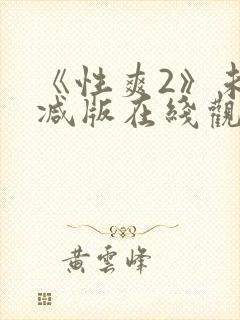 《性爽2》未
减版在线觀
黄雲峰